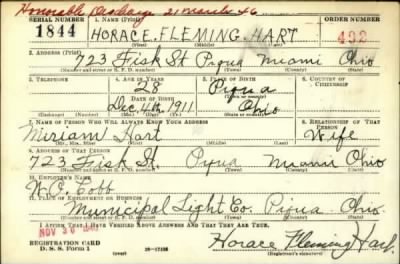 Honorable Discharge 21 March 46
SERIAL NUMBER
1. NAME (Print)
ORDER NUMBER
1844
HORACE FLEMING HART
492
(First) (Middle) (Last)
2. ADDRESS (Print)
723 Fisk St Piqua Miami Ohio
(Number and street or R. F. D. number) (Town) (County) (State)
3. TELEPHONE
4. AGE IN YEARS
5. PLACE OF BIRTH
6. COUNTRY OF CITIZENSHIP
28
Piqua
DATE OF BIRTH
(Town or county)
Dec. 4th 1911
Ohio
(Exchange) (No.) (Mo.) (Day) (Yr.) (State or country)
7. NAME OF PERSON WHO WILL ALWAYS KNOW YOUR ADDRESS
8. RELATIONSHIP OF THAT PERSON
Miriam Hart
Wife
(Mr., Mrs., Miss) (First) (Middle) (Last)
9. ADDRESS OF THAT PERSON
723 Fisk St. Piqua Miami Ohio
(Number and street or R. F. D. number) (Town) (County) (State)
10. EMPLOYER'S NAME
Cobb
11. PLACE OF EMPLOYMENT OR BUSINESS
Municipal Light Co. Piqua Ohio.
(Number and street or R. F. D. number) (Town) (County) (State)
I AFFIRM THAT I HAVE VERIFIED ABOVE ANSWERS AND THAT THEY ARE TRUE.
NOV 30
REGISTRATION CARD
D. S. S. Form 1
(over)
Horace Fleming Hart
(Registrant's signature)